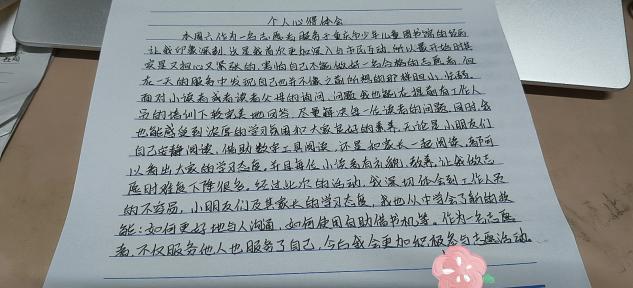 个人心得体会
本周六作为一名志愿者服务于重庆市少年儿童图书馆的经历
让我印象深刻,这是我首次更加深入与市民互动,所以最开始时其
实是又担心又紧张的,害怕自己不能做好一名合格的志愿者,但
在一天的服务中发现自己也并不像之前所想的那样胆小,怯弱
面对小读者或者读者父母的询问,问题我也能在提前有工作人
员的培训下较完美地回答,尽量解决每一位读者的问题,同时,我
也能感受到浓厚的学习氛围和大家良好的素养,无论是小朋友们
自己安静阅读,借助数字工具阅读,还是和家长一起阅读,都可
以看出大家的学习态度,并且每位小读者有礼貌,教养,让我做志
愿时难度下降很多。经过此次的活动,我深切体会到工作人员
的不容易,小朋友们及其家长的学习态度,我也从中学会了新的技
能:如何更好地与人沟通,如何使用自助借书机等。作为一名志愿
者,不仅服务他人也服务了自己,今后我会更加积极参与志愿活动。